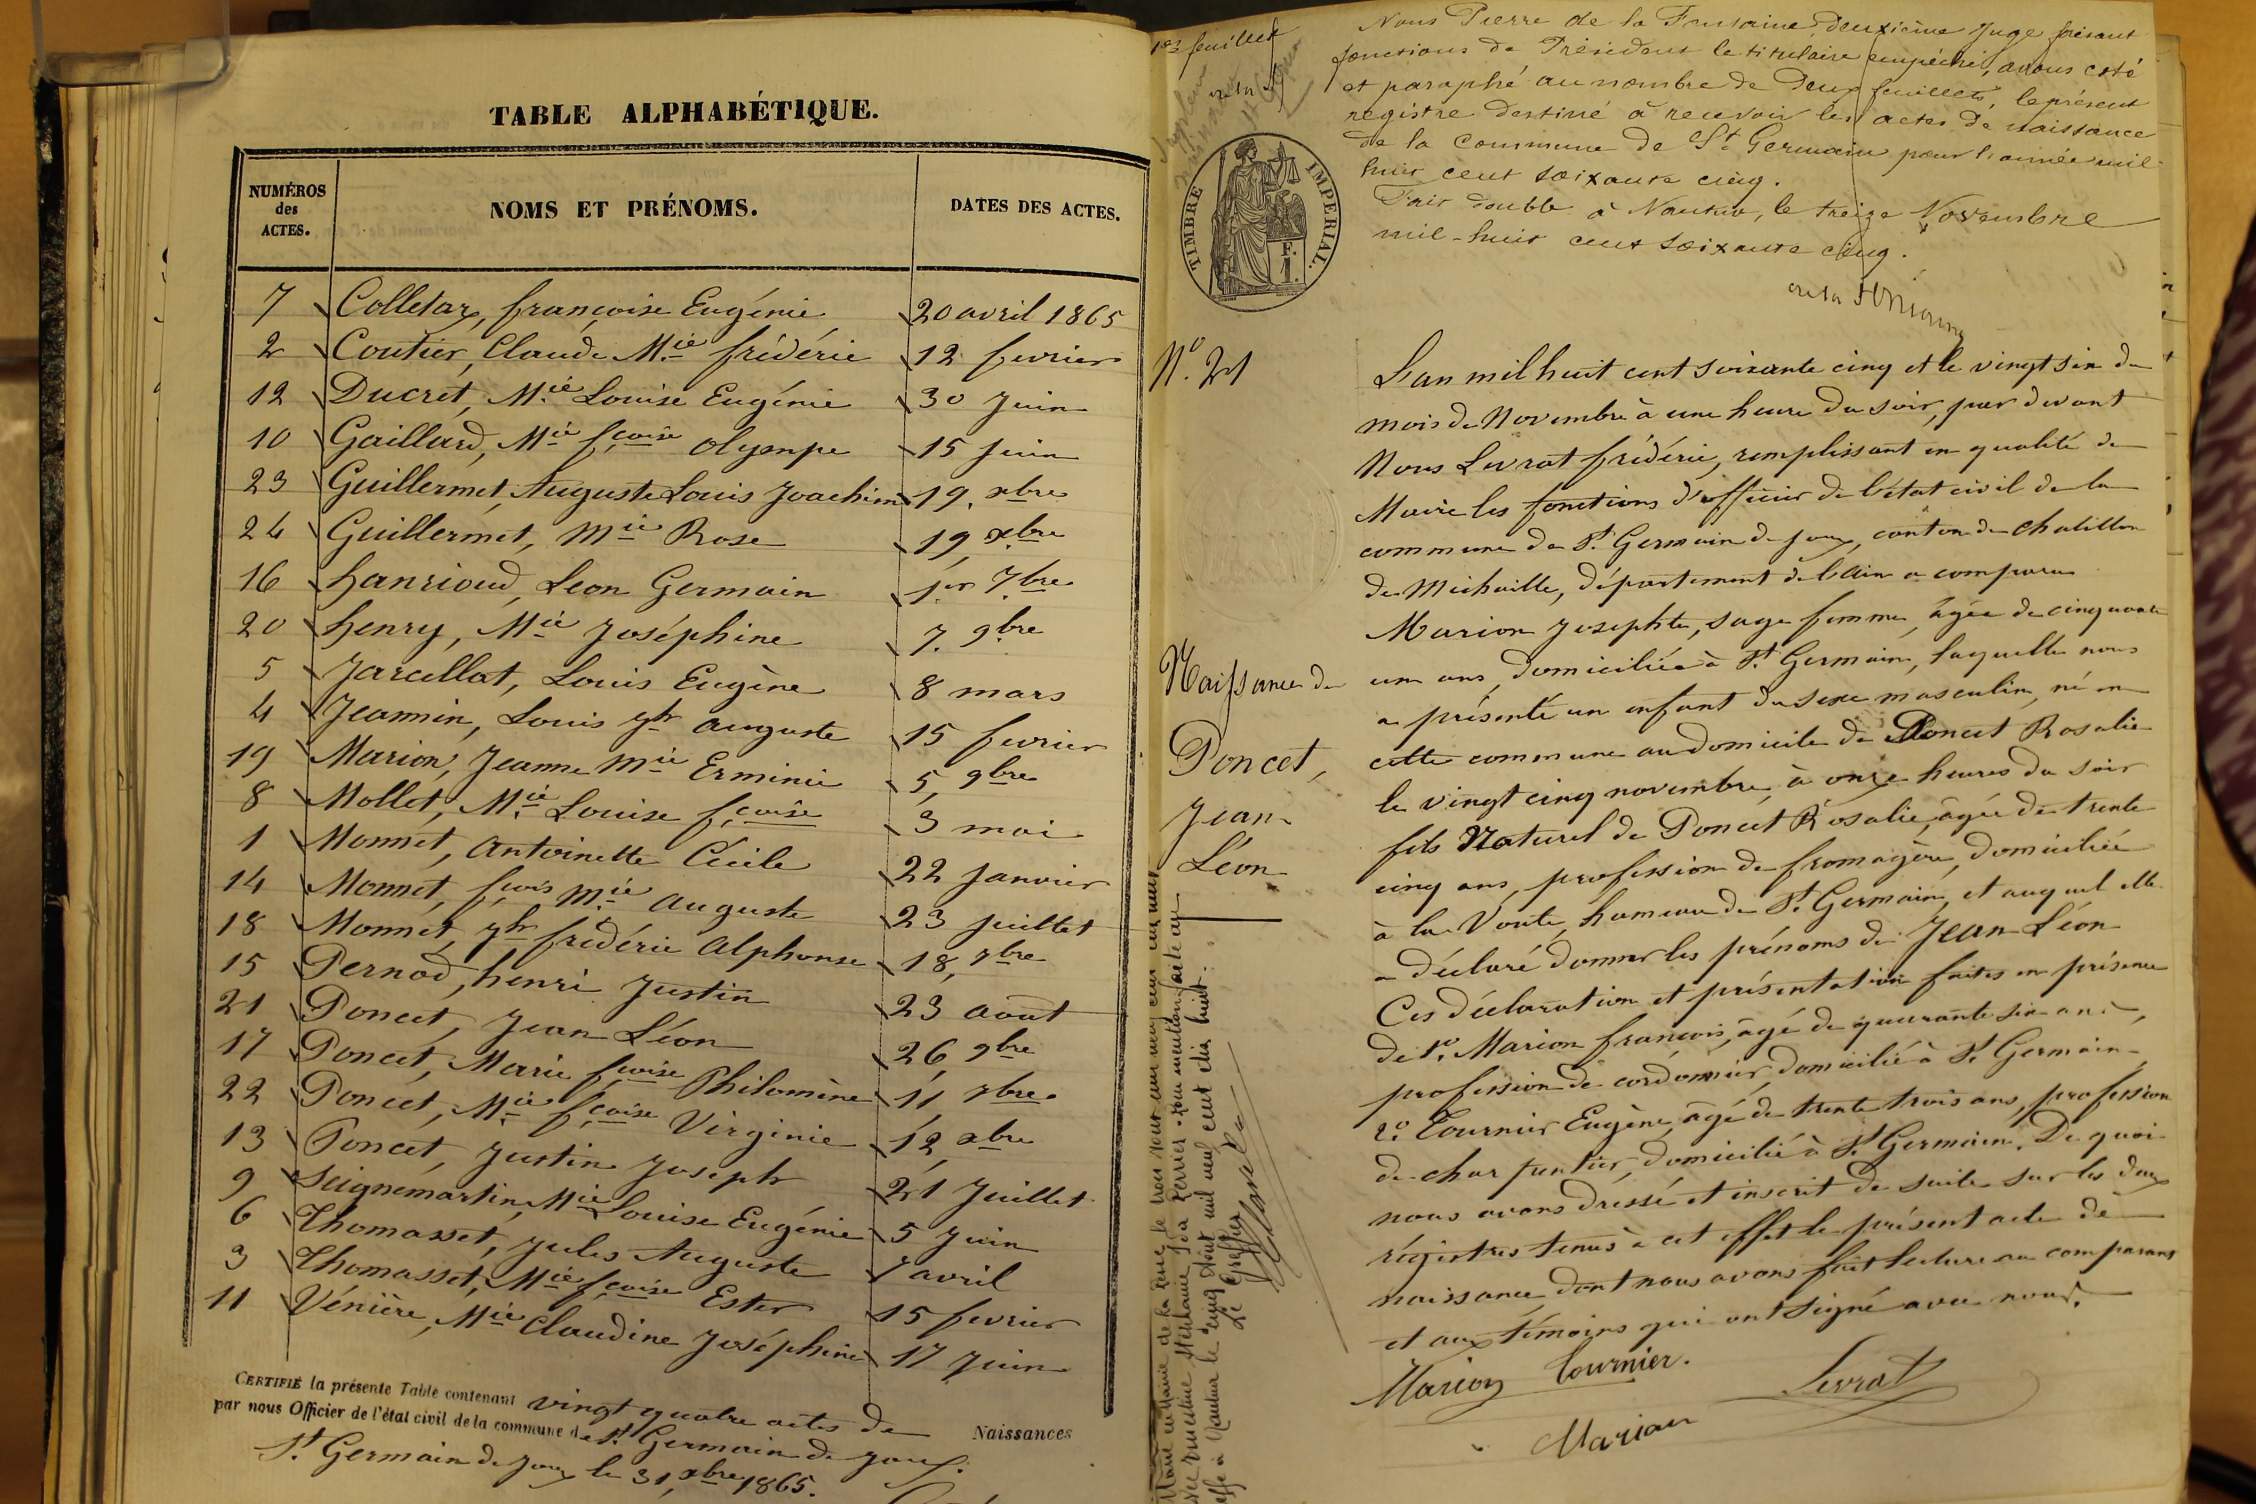 TABLE ALPHABÉTIQUE.
NUMÉROS des ACTES.
NOMS ET PRÉNOMS.
DATES DES ACTES.
7 Colletaz, françoise Eugénie 20 avril 1865
2 Coutier, Claude Mie frédéric 12 fevrier
12 Ducret, Mie Louise Eugénie 30 Juin
10 Gaillard, Mie fçoise Olympe 15 juin
23 Guillermet, Auguste Louis Joachim 19. xbre
24 Guillermet, Mie Rose 19, xbre
16 Hanrioud, Leon Germain 1er 7bre
20 henry, Mie Joséphine 7. 9bre
5 Jarcellat, Louis Eugène 8 mars
4 Jeannin, Louis jh auguste 15 fevrier
19 Marion, Jeanne Mie Erminie 5, 9bre
8 Mollet, Mie Louise fçoise 3 mai
1 Monnet, Antoinette Cécile 22 Janvier
14 Monnet, fçois Mie auguste 23 juillet
18 Monnet, jh frédéric Alphonse 18, 7bre
15 Pernod, henri Justin 23 août
21 Poncet, Jean Léon 26, 9bre
17 Poncet, Marie fçoise Philomène 11, 7bre
22 Poncet, Mie fçoise Virginie 12, xbre
13 Poncet, Justin Joseph 21 Juillet
9 Seignemartin, Mie Louise Eugénie 5 Juin
6 Thomasset, Jules Auguste 7 avril
3 Thomasset, Mie fçoise Ester 15 fevrier
11 Vénière, Mie Claudine Joséphine 17 Juin
CERTIFIÉ la présente Table contenant vingt quatre actes de Naissances
par nous Officier de l'état civil de la commune de St Germain de Joux.
St Germain de Joux le 31, xbre 1865.
1er feuillet
Nous Pierre de la Fontaine, deuxième Juge faisant
fonctions de Président le titulaire empêché, avons coté
et paraphé au nombre de Deux feuillets, le présent
registre destiné à recevoir les actes de naissance
de la Commune de St Germain pour l'année mil
huit cent soixante cinq.
Fait double à Nantua, le treize Novembre
mil-huit cent soixante cinq.
TIMBRE IMPÉRIAL.
F. 1.
No. 21
Naissance de
Poncet,
Jean
Léon
L'an mil huit cent soixante cinq et le vingt six du
mois de Novembre à une heure du soir, par devant
Nous Levrat frédéric, remplissant en qualité de
Maire les fonctions d'officier de l'état civil de la
commune de St Germain de Joux, canton de Chatillon
de Michaille, département de l'Ain a comparu
Marion Josephte, sage femme, âgée de cinquante
un ans, domiciliée à St Germain, laquelle nous
a présenté un enfant du sexe masculin, né en
cette commune au domicile de Poncet Rosalie
le vingt cinq novembre, à onze heures du soir
fils Naturel de Poncet Rosalie, âgée de trente
cinq ans, profession de fromagère, domiciliée
à la Voute, hameau de St Germain, et auquel elle
a déclaré donner les prénoms de Jean Léon
Ces déclaration et présentation faites en présence
de 1o. Marion françois, âgé de quarante six ans,
profession de cordonnier, domicilié à St Germain,
2o. Tournier Eugène, âgé de trente trois ans, profession
de charpentier, domicilié à St Germain. De quoi
nous avons dressé et inscrit de suite sur les deux
régistres tenus à cet effet le présent acte de
naissance, dont nous avons fait lecture au comparant
et aux témoins qui ont signé avec nous.
Marion Tournier.
Levrat
Marion